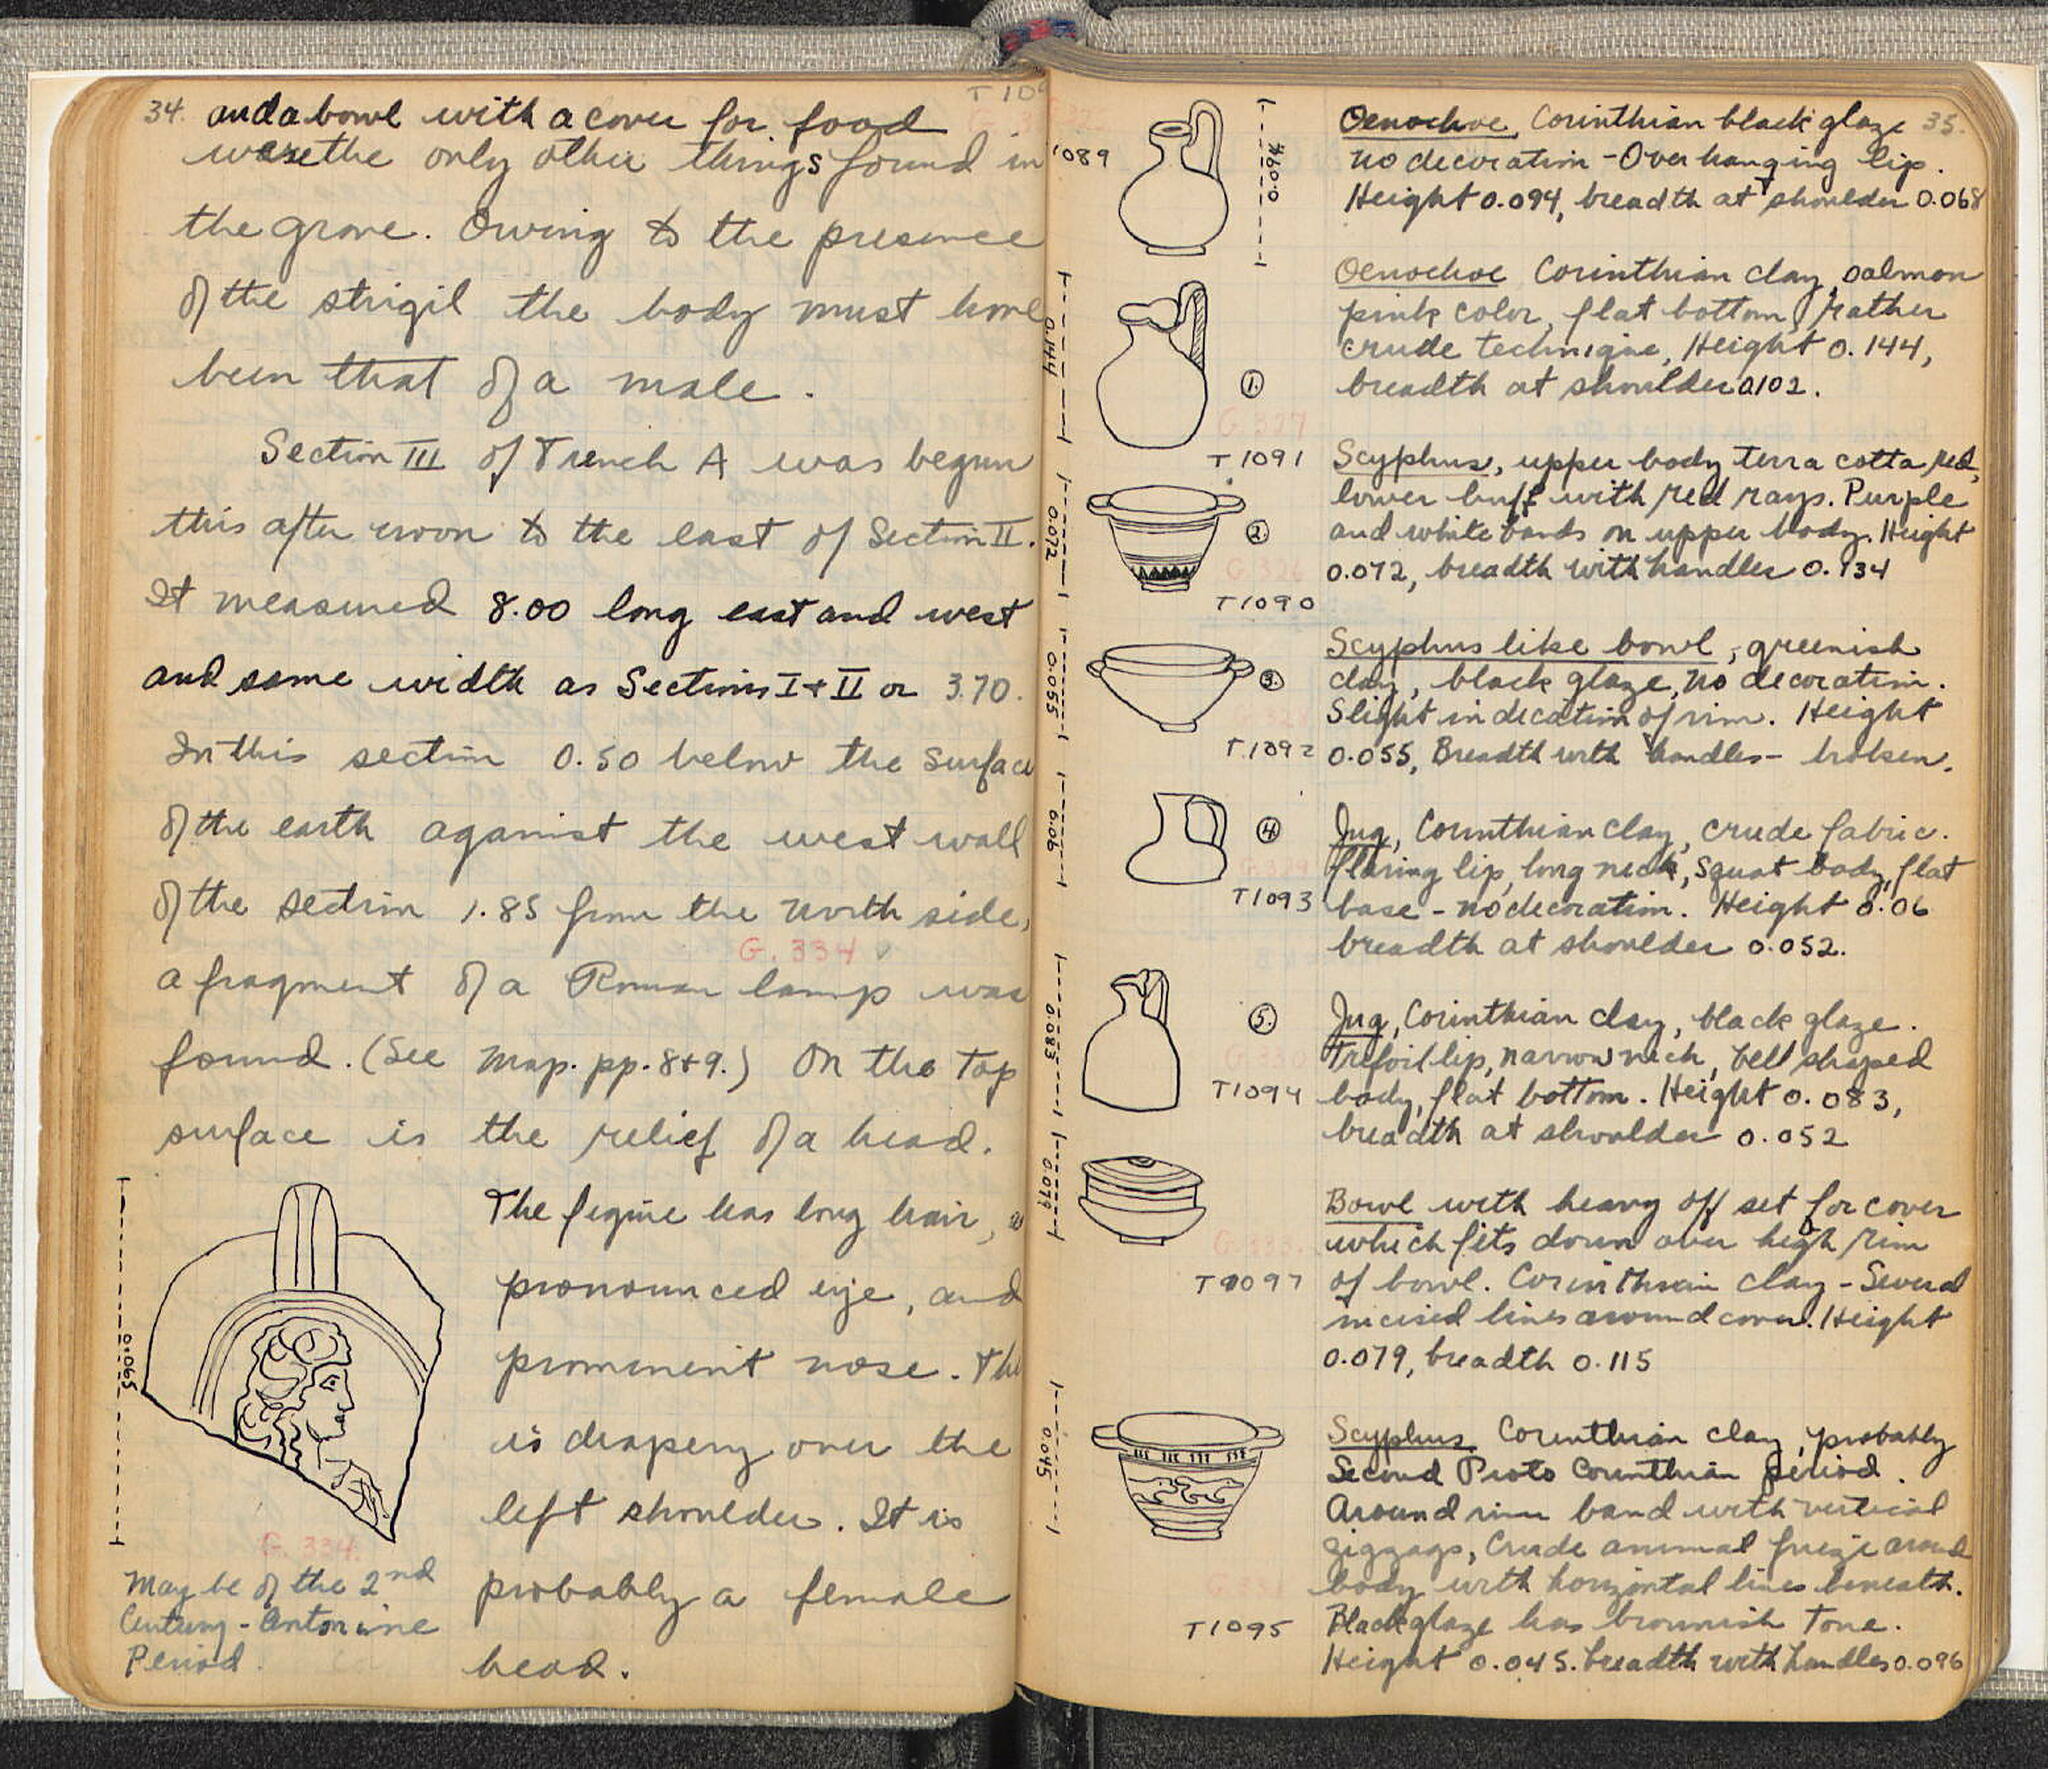 34. and a bowl with a cover for food
were the only other things found in
the grave. Owing to the presence
of the strigil the body must have
been that of a male.
Section III of Trench A was begun
this afternoon to the east of Section II.
It measured 8.00 long east and west
and same width as Sections I + II or 3.70.
In this section 0.50 below the surface
of the earth aganist the west wall
of the section 1.85 from the north side,
G. 334 ✓
a fragment of a Roman lamp was
found. (See Map. pp. 8+9.) On the top
surface is the relief of a head.
The figure has long hair, a
pronounced eye, and
prominent nose. The
is drapery over the
left shoulder. It is
probably a female
head.
0.065
G. 334.
May be of the 2nd
Century - Antonine
Period
35.
1089
0.094
Oenochoe Corinthian black glaze
no decoration - Over hanging lip.
Height 0.094, breadth at shoulder 0.068
0.144
1.
Oenochoe Corinthian clay, salmon
pink color, flat bottom, rather
crude technique, Height 0.144,
breadth at shoulder 0.102.
G. 327
T 1091
0.072
2.
Scyphus, upper body terra cotta red,
lower buff with red rays. Purple
and white bands on upper body. Height
0.072, breadth with handles 0.134
G. 326
T 1090
0.055
3.
Scyphus like bowl, greenish
clay, black glaze, no decoration.
Slight indication of rim. Height
0.055, Breadth with handles - broken.
T 1092
0.06
4.
Jug, Corinthian clay, crude fabric.
flaring lip, long neck, squat body, flat
base - no decoration. Height 0.06
breadth at shoulder 0.052.
G. 329
T 1093
0.083
5.
Jug, Corinthian clay, black glaze.
Trefoil lip, narrow neck, bell shaped
body, flat bottom. Height 0.083,
breadth at shoulder 0.052
G. 330
T 1094
0.079
Bowl with heavy off set for cover
which fits down over high rim
of bowl. Corinthian clay - Several
incised lines around cover. Height
0.079, breadth 0.115
G. 333.
T 1097
0.045
Scyphus Corinthian clay, probably
Second Proto Corinthian period.
Around rim band with vertical
zigzags, Crude animal frieze around
body with horizontal lines beneath.
Black glaze has brownish tone.
Height 0.045. breadth with handles 0.096
T 1095